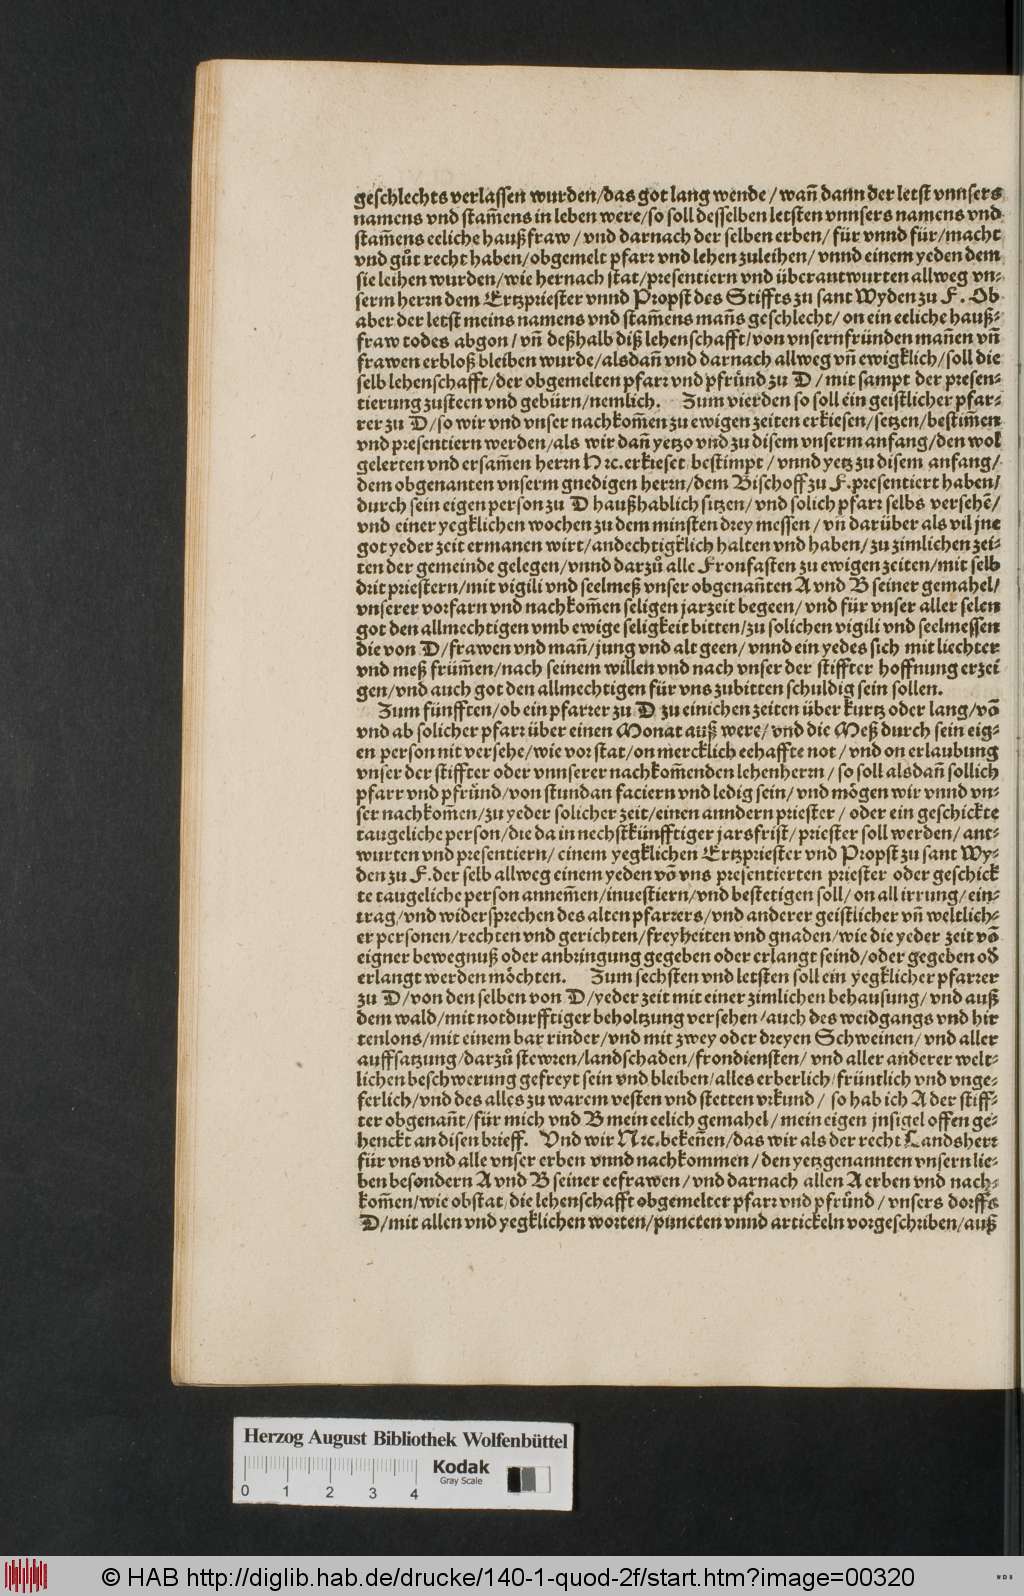 geschlechts verlassen wurden/das got lang wende / wañ dann der letst vnnsers
namens vnd stam̃ens in leben were/so soll desselben letsten vnnsers namens vnd
stam̃ens eeliche haußfraw / vnd darnach der selben erben/ für vnnd für/macht
vnd gůt recht haben/obgemelt pfarr vnd lehen zuleihen/ vnnd einem yeden dem
sie leihen wurden/wie hernach stat/presentiern vnd überantwurten allweg vn-
serm herrn dem Ertzpriester vnnd Propst des Stiffts zu sant Wyden zu F. Ob
aber der letst meins namens vnd stam̃ens mañs geschlecht/ on ein eeliche hauß-
fraw todes abgon/ vñ deßhalb diß lehenschafft/von vnsern fründen mañen vñ
frawen erbloß bleiben wurde/alsdañ vnd darnach allweg vñ ewigklich/soll die
selb lehenschafft/der obgemelten pfarr vnd pfrůnd zu D/mit sampt der presen-
tierung zusteen vnd gebürn/nemlich. Zum vierden so soll ein geistlicher pfar-
rer zu D/so wir vnd vnser nachkom̃en zu ewigen zeiten erkiesen/setzen/bestim̃en
vnd presentiern werden/als wir dañ yetzo vnd zu disem vnserm anfang/den wol
gelerten vnd ersam̃en herrn N ꝛc. erkieset bestimpt / vnnd yetz zu disem anfang/
dem obgenanten vnserm gnedigen herrn/dem Bischoff zu F.presentiert haben/
durch sein eigen person zu D haußhablich sitzen/ vnd solich pfarr selbs versehẽ/
vnd einer yegklichen wochen zu dem minsten drey messen / vñ darüber als vil jne
got yeder zeit ermanen wirt/andechtigklich halten vnd haben/zu zimlichen zei-
ten der gemeinde gelegen/vnnd darzů alle Fronfasten zu ewigen zeiten/mit selb
drit priestern/mit vigili vnd seelmeß vnser obgenañten A vnd B seiner gemahel/
vnserer vorfarn vnd nachkom̃en seligen jarzeit begeen/ vnd für vnser aller selen
got den allmechtigen vmb ewige seligkeit bitten/zu solichen vigili vnd seelmessen
die von D/frawen vnd mañ/jung vnd alt geen/ vnnd ein yedes sich mit liechter
vnd meß früm̃en/nach seinem willen vnd nach vnser der stiffter hoffnung erzei
gen/vnd auch got den allmechtigen für vns zubitten schuldig sein sollen.
Zum fünfften/ob ein pfarrer zu D zu einichen zeiten über kurtz oder lang/võ
vnd ab solicher pfarr über einen Monat auß were/ vnd die Meß durch sein eig-
en person nit versehe/wie vor stat/on mercklich eehaffte not / vnd on erlaubung
vnser der stiffter oder vnnserer nachkom̃enden lehenherrn / so soll alsdañ sollich
pfarr vnd pfrůnd/von stundan faciern vnd ledig sein/ vnd mögen wir vnnd vn-
ser nachkom̃en/zu yeder solicher zeit/einen anndern priester / oder ein geschickte
taugeliche person/die da in nechstkünfftiger jarsfrist/ priester soll werden/ ant-
wurten vnd presentiern/ einem yegklichen Ertzpriester vnd Propst zu sant Wy-
den zu F.der selb allweg einem yeden võ vns presentierten priester oder geschick
te taugeliche person annem̃en/inuestiern/vnd bestetigen soll/on all irrung/ein-
trag/vnd widersprechen des alten pfarrers/vnd anderer geistlicher vñ weltlich-
er personen/rechten vnd gerichten/freyheiten vnd gnaden/wie die yeder zeit võ
eigner bewegnuß oder anbringung gegeben oder erlangt seind/oder gegeben od̾
erlangt werden möchten. Zum sechsten vnd letsten soll ein yegklicher pfarrer
zu D/von den selben von D/yeder zeit mit einer zimlichen behausung/ vnd auß
dem wald/mit notdurfftiger beholtzung versehen/auch des weidgangs vnd hir
tenlons/mit einem bar rinder/vnd mit zwey oder dreyen Schweinen/ vnd aller
auffsatzung/darzů stewren/landschaden/frondiensten/ vnd aller anderer welt-
lichen beschwerung gefreyt sein vnd bleiben/alles erberlich/früntlich vnd vnge-
ferlich/vnd des alles zu warem vesten vnd stetten vrkund / so hab ich A der stiff-
ter obgenañt/für mich vnd B mein eelich gemahel/mein eigen jnsigel offen ge-
henckt an disen brieff. Vnd wir N ꝛc. bekeñen/das wir als der recht Landsherr
für vns vnd alle vnser erben vnnd nachkommen / den yetzgenannten vnsern lie-
ben besondern A vnd B seiner eefrawen/ vnd darnach allen A erben vnd nach-
kom̃en/wie obstat/die lehenschafft obgemelter pfarr vnd pfrůnd / vnsers dorffs
D/mit allen vnd yegklichen worten/puncten vnnd artickeln vorgeschriben/auß
Herzog August Bibliothek Wolfenbüttel
Kodak
Gray Scale
0 1 2 3 4
© HAB http://diglib.hab.de/drucke/140-1-quod-2f/start.htm?image=00320